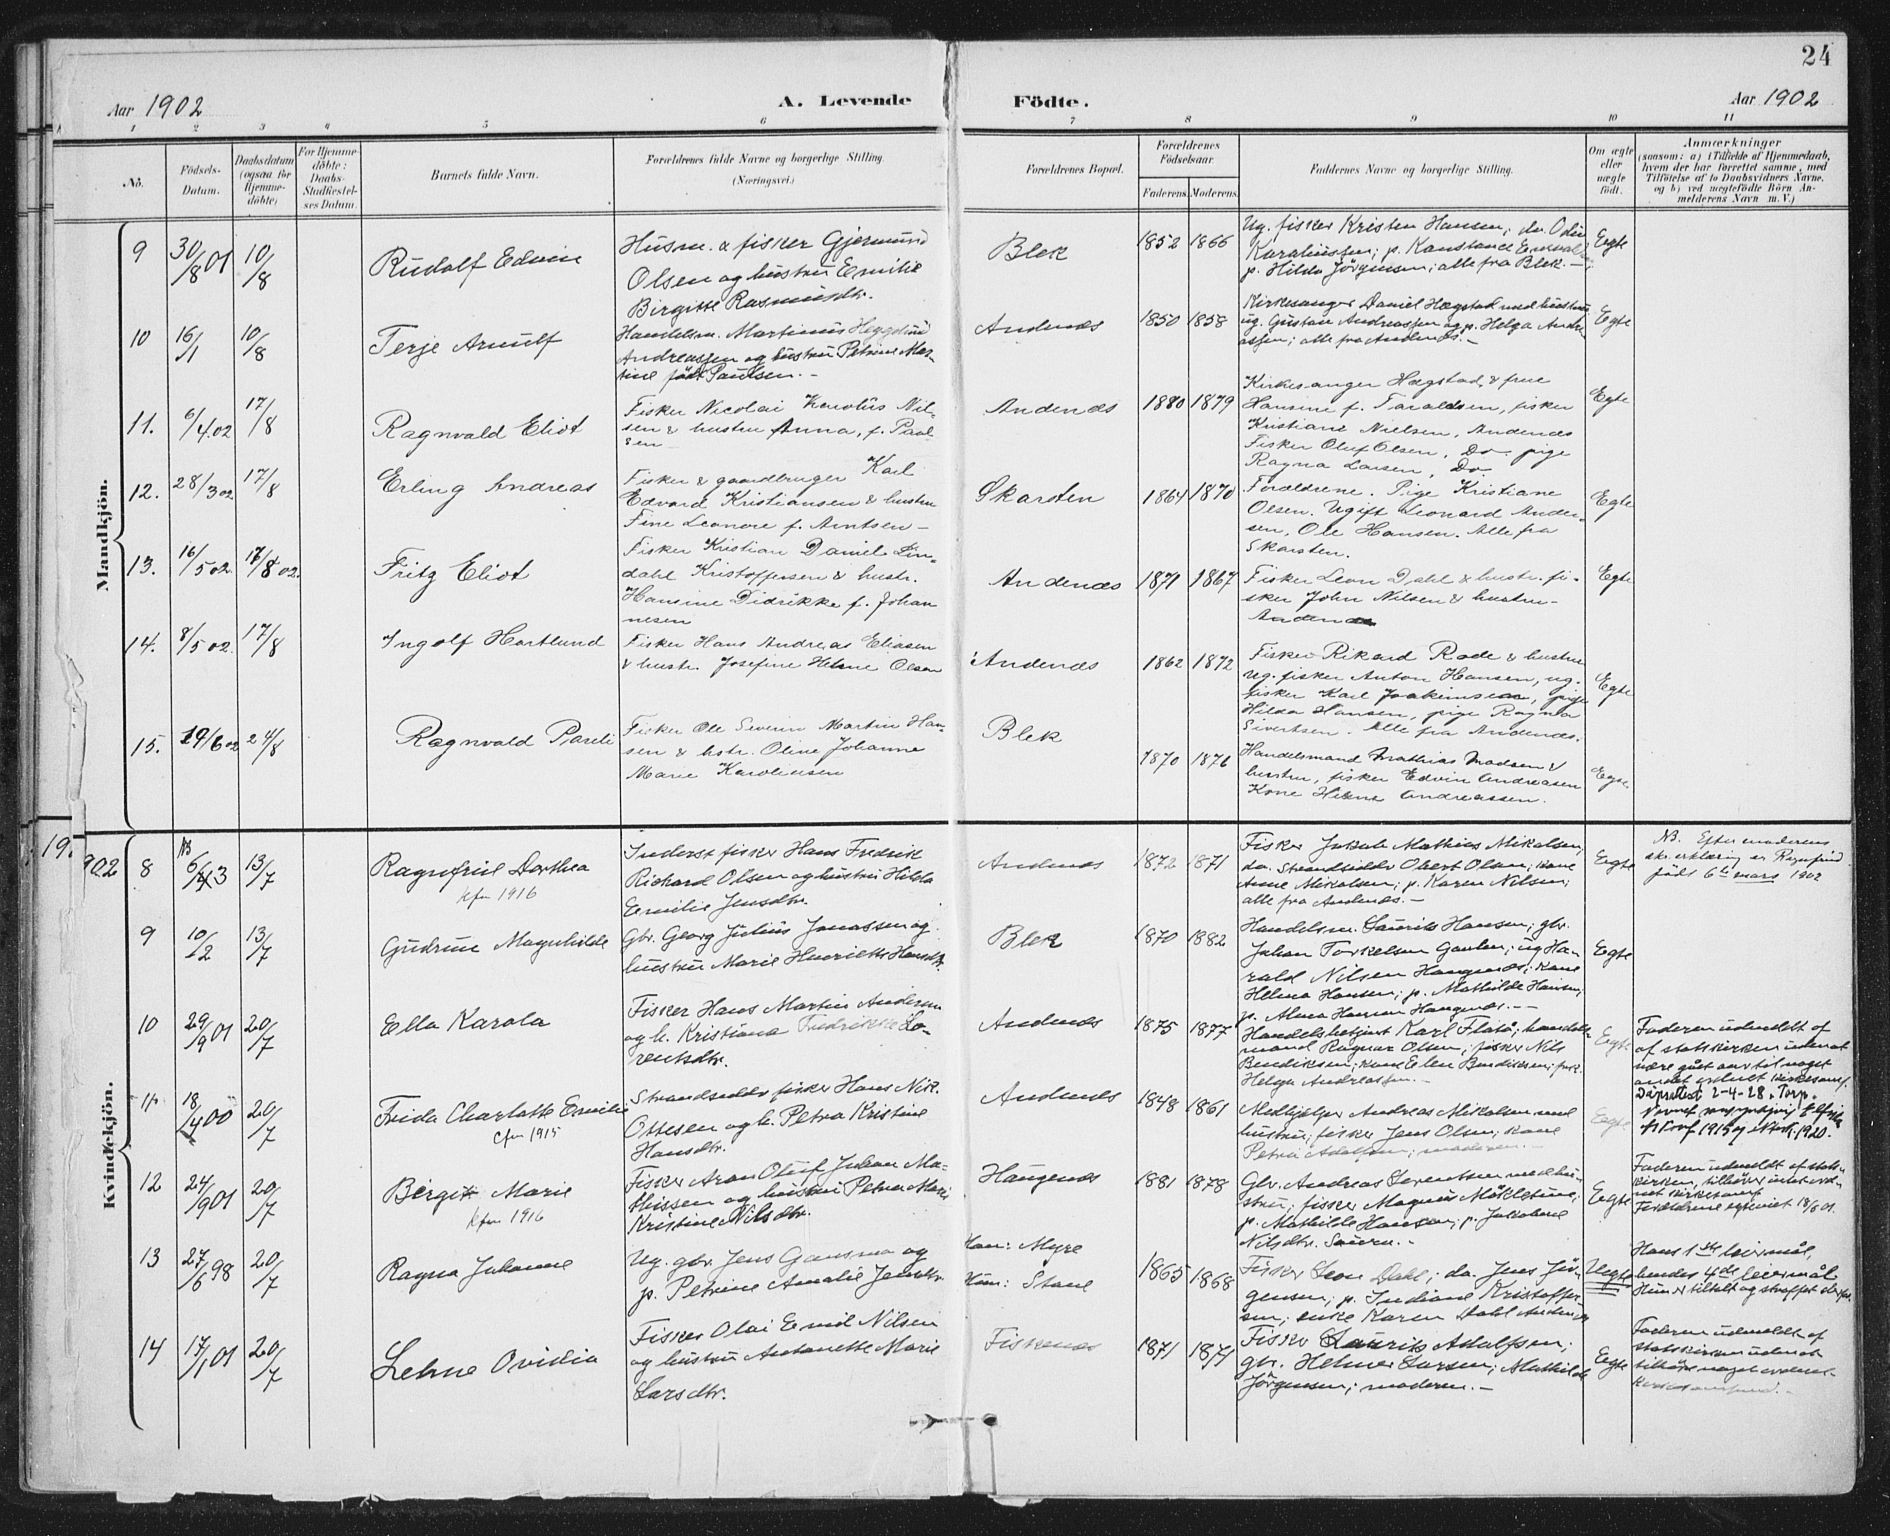 24
Aar 1902
A. Levende
Födte.
Aar 1902
1 2 3 4 5 6 7 8 9 10 11
No.
Födsels-
Datum.
Daabsdatum
(ogsaa for
Hjemme-
döbte)
For Hjemme-
döbte:
Daabs-
Stadfæstel-
ses Datum.
Barnets fulde Navn.
Forældrenes fulde Navne og borgerlige Stilling.
(Næringsvei.)
Forældrenes Bopæl.
Forældrenes
Födselsaar.
Faderens. Moderens.
Faddernes Navne og borgerlige Stilling.
Om ægte
eller
uægte
födt.
Anmærkninger
(saasom: a) i Tilfælde af Hjemmedaab,
hvem der har forrettet samme, med
Tilföielse af to Daabsvidners Navne,
og b) ved uægtefödte Börn An-
melderens Navn m. V.)
Mandkjön.
9
30/8 01
10/8
Rudolf Edvin
Husm. & fisker Gjermund
Olsen og hustru Emilie
Birgitte Rasmusdtr.
Blek
1852 1866
Ug. fisker Kristen Hansen; do. Odin
p. Hilda Jörgensen; alle fra Blek.
Egte
10
16/1
10/8
Terje Arnulf
Handelsm. Martinus
Andreassen og hustru Petrine Mar-
tine födt Paulsen.
Andenæs
1850 1858
Kirkesanger Daniel Hægstad med hustru
ug. Gustav Andreassen og p. Helga Andre-
assen; alle fra Andenæs.
Egte
11.
6/4 02
17/8
Ragnvald Eliot
Fisker Nicolai Karolius Nil-
sen & hustru Anna, f. Paul-
sen
Andenæs
1880 1879
Kirkesanger Hægstad & frue
Hansine f. Taraldsen, fisker
Kristiane Nielsen, Andenæs
Fisker Oluf Olsen, Do pige
Ragna Larsen, Do
Egte
12.
28/3 02
17/8
Erling Andreas
Fisker & gaardbruger Karl
Edvard Kristiansen & hustru
Fine Leonore f. Arntsen
Skarsten
1864 1870
Forældrene. Pige Kristiane
Olsen. Ugift Leonard Ander-
sen, Ole Hansen. Alle fra
Skarsten.
Egte
13.
16/5 02
17/8 02.
Fritz Eliot
Fisker Kristian Daniel Lin-
dahl Kristoffersen & hustr.
Hansine Didrikke f. Johan
nesen
Andenæs
1871 1867
Fisker Leon Dahl & hustr. fi-
sker John Nilsen & hustru
Andenæs
Egte
14.
8/5 02
17/8
Ingolf Hartlund
Fisker Hans Andreas Eliasen
& hustr. Josefine Helene Olsen
Andenæs
1862 1872
Fisker Rikard Rode & hustru
ug. fisker Anton Hansen, ug.
fisker Karl Joakimsen, pige
Hilda Hansen, pige Ragna
Sivertsen. Alle fra Andenæs.
Egte
15.
19/6 02
24/8
Ragnvald Pareli
Fisker Ole Severin Martin Han-
sen & hstr. Oline Johanne
Marie Karolinesen
Blek
1870 1876
Handelsmand Mathias Madsen &
hustru, fisker Edvin Andreasen
Kone Helene Andreassen.
Egte
Kvindekjön.
19.
902
8
NB
6/3
13/7
Ragnfrid Dorthea
kfm 1916
Inderst fisker Hans Fredrik
Richard Olsen og hustru Hilda
Emilie Jensdtr.
Andenæs
1872 1871
Fisker Jakob Mathias Mikalsen;
do. Strandsidder Obert Olsen; kone
Anne Mikalsen; p. Karen Nilsen;
alle fra Andenæs.
Egte
NB. Efter moderens
skr. erklæring er Ragnfrid
födt 6te mars 1902
9
10/2
13/7
Gudrun Magnhilde
Gbr. Georg Julius Jonassen og
hustru Marie Henriette Hansdtr.
Blek
1870 1882
Handelsm. Laurits Hansen; gbr.
Johan Torkelsen Gaulen; ug Ha-
rald Nilsen Haugenæs; kone
Helena Hansen; p. Mathilde Hansen;
p. Alma Hansen Haugenæs.
Egte
10
29/9 01
20/7
Ella Karola
Fisker Hans Martin Andersen
og h. Kristiane Fredrikke Lo-
rentsdtr.
Andenæs
1875 1877
Handelsbetjent Karl Flatö; handels-
mand Ragnar Olsen; fisker Nils
Bendiksen; kone Elen Bendiksen; frk.
Helga Andreassen.
Egte
Faderen udmeldt af
af statskirken uden at
være gåt over til noget
andet ordnet kirkesamf.
11
18/4 00
20/7
Frida Charlotte Emilie
Cfm 1915
Strandsidder fisker Hans Nik.
Ottesen og h. Petra Kristine
Hansdtr.
Andenæs
1848 1861
Medhjelper Andreas Mikalsen med
hustru; fisker Jens Olsen; kone
Petra Adolfsen; moderen.
Egte
Dåpsattest 2-4-28. Torp.
12
24/9 01
20/7
Birgit Marie
kfm 1916
Fisker Aron Oluf Johan Ma-
thissen og hustru Petra Marie
Kristine Nilsdtr.
Haugenæs
1881 1878
Gbr. Andreas Lorentsen med hu-
stru; fisker Magnus
p. Mathilde Hansen; p. Jakobine
Nilsdtr.
Egte
Faderen udmeldt af stats-
kirken, tilhörer intet ord-
net kirkesamf.
Forældrene egteviet 18/6 01.
13
27/6 98
20/7
Ragna Johanne
Ug. gbr. Jens Gansmo og
p. Petrine Amalie Jensdtr.
Han: Myre
Hun: Stane
1865 1868
Fisker Leon Dahl; do. Jens Jör-
gensen; p. Indiane Kristoffer-
sen; enke Karen Dahl Andenæs
Uegte
Hans 1ste leiermål,
hendes 4de leiermål
Hun er tiltalt og straffet derfor.
14
17/1 01
20/7
Lehne Ovidia
Fisker Olai Emil Nilsen
og hustru Antonette Marie
Larsdtr.
Fiskenæs
1871 1871
Fisker Laurits Adolfsen;
gbr. Helmer Larsen; Mathilde
Jörgensen; moderen.
Egte
Faderen udmeldt af
statskirken uden at
tilhöre noget ordnet
kirkesamfund.